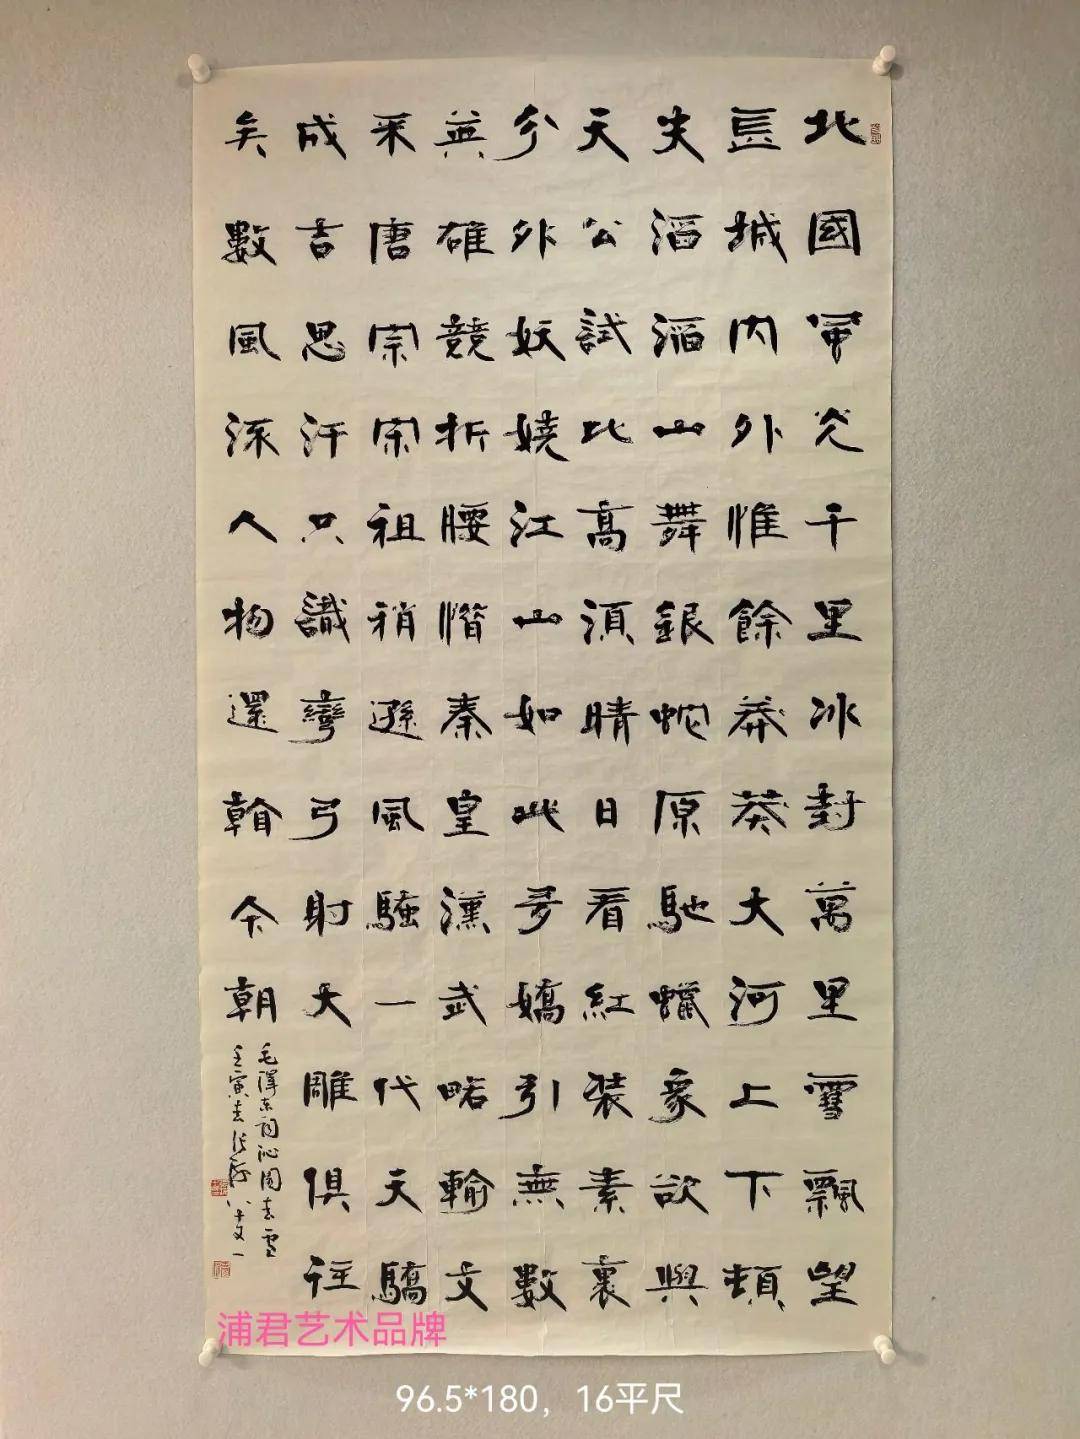 北國風光千里冰封萬里雪飄望
長城內外惟餘莽莽大河上下頓
失滔滔山舞銀蛇原馳蠟象欲與
天公試比高須晴日看紅裝素裹
分外妖嬈江山如此多嬌引無數
英雄競折腰惜秦皇漢武略輸文
采唐宗宋祖稍遜風騷一代天驕
成吉思汗只識彎弓射大雕俱往
矣數風流人物還看今朝
毛澤東詞沁園春雪
壬寅春張海八十又一
浦君艺术品牌
96.5*180，16平尺